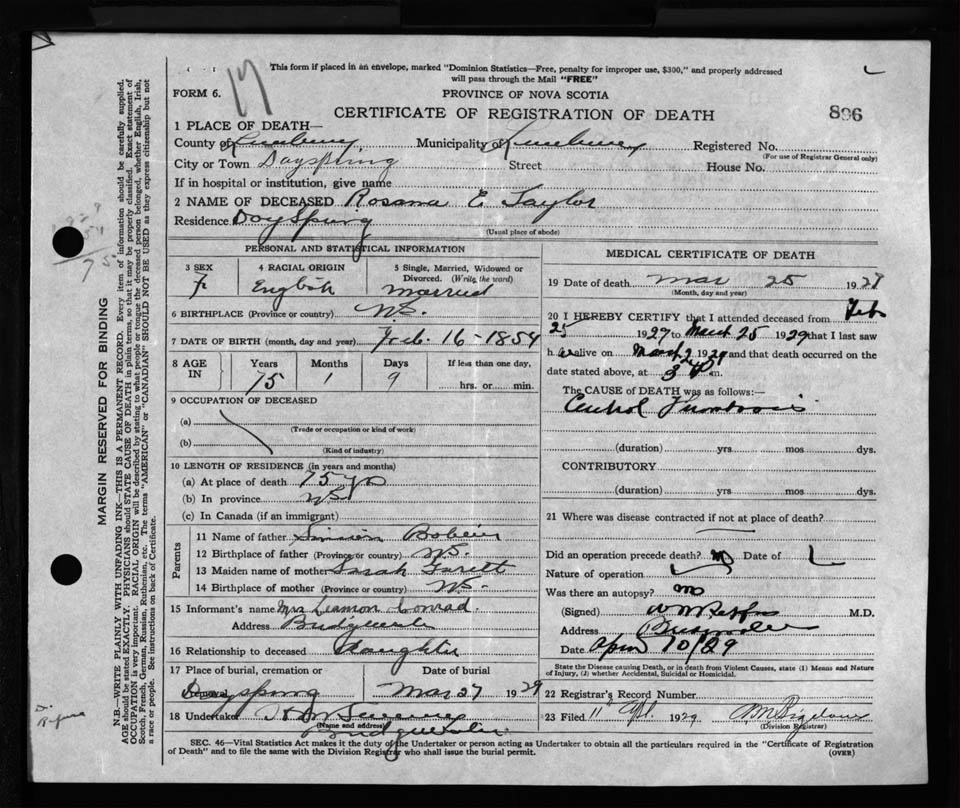 This form if placed in an envelope, marked "Dominion Statistics—Free, penalty for improper use, $300," and properly addressed
will pass through the Mail "FREE"
17
FORM 6.
PROVINCE OF NOVA SCOTIA
CERTIFICATE OF REGISTRATION OF DEATH
896
1 PLACE OF DEATH—
County of Lunenburg Municipality of Lunenburg Registered No.
(For use of Registrar General only)
City or Town Dayspring Street House No.
If in hospital or institution, give name
2 NAME OF DECEASED Rosanna E Taylor
Residence DaySpring
(Usual place of abode)
PERSONAL AND STATISTICAL INFORMATION
3 SEX 4 RACIAL ORIGIN 5 Single, Married, Widowed or
Divorced. (Write the word)
F English Married
6 BIRTHPLACE (Province or country) N.S.
7 DATE OF BIRTH (month, day and year) Feb. 16 - 1854
8 AGE IN Years Months Days If less than one day,
75 1 9 hrs. or min.
9 OCCUPATION OF DECEASED
(a)
(Trade or occupation or kind of work)
(b)
(Kind of industry)
10 LENGTH OF RESIDENCE (in years and months)
(a) At place of death 75 yrs
(b) In province N.S.
(c) In Canada (if an immigrant)
Parents
11 Name of father
12 Birthplace of father (Province or country) N.S.
13 Maiden name of mother Sarah
14 Birthplace of mother (Province or country) N.S.
15 Informant's name Mrs Leamon Conrad.
Address Bridgewater
16 Relationship to deceased Daughter
17 Place of burial, cremation or removal Date of burial
Dayspring Mar 27 1929
18 Undertaker
(Name and address)
Bridgewater
MEDICAL CERTIFICATE OF DEATH
19 Date of death Mar 25 1929
(Month, day and year)
20 I HEREBY CERTIFY that I attended deceased from Feb
25 1927 to March 25 1929 that I last saw
her alive on March 2 1929 and that death occurred on the
date stated above, at 3 m.
The CAUSE of DEATH was as follows:
Cerebral Thrombosis
(duration) yrs mos dys.
CONTRIBUTORY
(duration) yrs. mos. dys.
21 Where was disease contracted if not at place of death?
Did an operation precede death? no Date of
Nature of operation
Was there an autopsy? no
(Signed) M.D.
Address Bridgewater
Date April 10/29
State the Disease causing Death, or in death from Violent Causes, state (1) Means and Nature
of Injury, (2) whether Accidental, Suicidal or Homicidal.
22 Registrar's Record Number
23 Filed 11 Apl. 1929 Bigelow
(Division Registrar)
SEC. 46—Vital Statistics Act makes it the duty of the Undertaker or person acting as Undertaker to obtain all the particulars required in the "Certificate of Registration
of Death" and to file the same with the Division Registrar who shall issue the burial permit.
(OVER)
MARGIN RESERVED FOR BINDING
N.B. WRITE PLAINLY WITH UNFADING INK—THIS IS A PERMANENT RECORD. Every item of information should be carefully supplied.
AGE should be stated EXACTLY. PHYSICIANS should STATE CAUSE OF DEATH in plain terms, so that it may be properly classified. Exact statement of
OCCUPATION is very important. RACIAL ORIGIN will be described by stating to what people or tongue the deceased person belonged, whether English, Irish,
Scotch, French, German, Russian, Ruthenian, etc. The terms "AMERICAN" or "CANADIAN" SHOULD NOT BE USED as they express citizenship but not
a race or people. See instructions on back of Certificate.
54
75